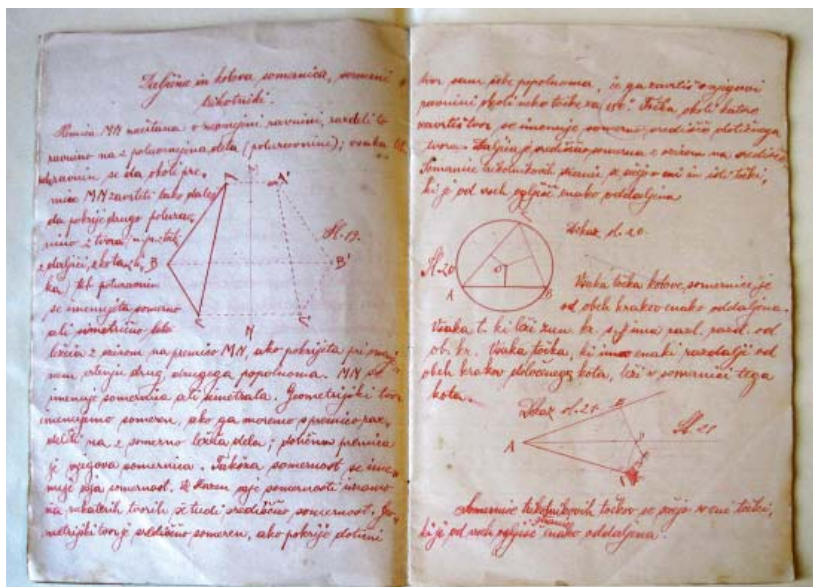 Daljične in kotova somernica, somerni
trikotniki.
Premica MN načrtana v neomejeni ravnini, razdeli to
ravnino na 2 neomejena dela (poluravnini); vsaka
poluravnin se da okoli pre-
mice MN zavrtiti tako daleč
da pokrije drugo polurav-
nino 2 tvora
2 daljici, 2 kota,
ka, teh poluravnin
se imenujeta somerno
ali simetrično
ležeča z ozirom na premico MN, ako pokrijeta pri
nem vrtenju drug drugega popolnoma. MN se
imenuje somernica ali simetrala. Geometrijski tvor
imenujemo someren, ako ga moremo s premico raz-
deliti na 2 somerno ležeča dela; dotična premica
je njegova somernica. Takšna somernost se ime-
nuje osja somernost. Z ozirom osje somernosti imamo
na nekaterih tvorih še tudi središčno somernost. Geo-
metrijski tvor je središčno someren, ako pokrije dotični
A A'
Sl. 19.
B B'
C C'
M
N
tvor sam sebe popolnoma, če ga zavrtiš v njegovi
ravnini okoli neke točke za 180°. Točka okoli katere
zavrtiš tvor se imenuje somerno središče dotičnega
tvora. Daljica je središčno somerna z ozirom na središče.
Somernice trikotnikovih stranic se sečejo v eni in isti točki,
ki je od vseh oglišč enako oddaljena
C
Dokaz sl. 20.
Sl. 20
A B
Vsaka točka kotove somernice je
od obeh krakov enako oddaljena.
Vsaka t. ki leži zun. kr. s ima razl. razd. od
ob. kr. Vsaka točka, ki ima enaki razdalji od
obeh krakov določnega kota, leži v somernici tega
kota.
Dokaz sl. 21.
B
Sl. 21
A
Somernice trikotnikovih kotov se sečejo v eni točki,
stranic
ki je od vseh oglišč enako oddaljena.